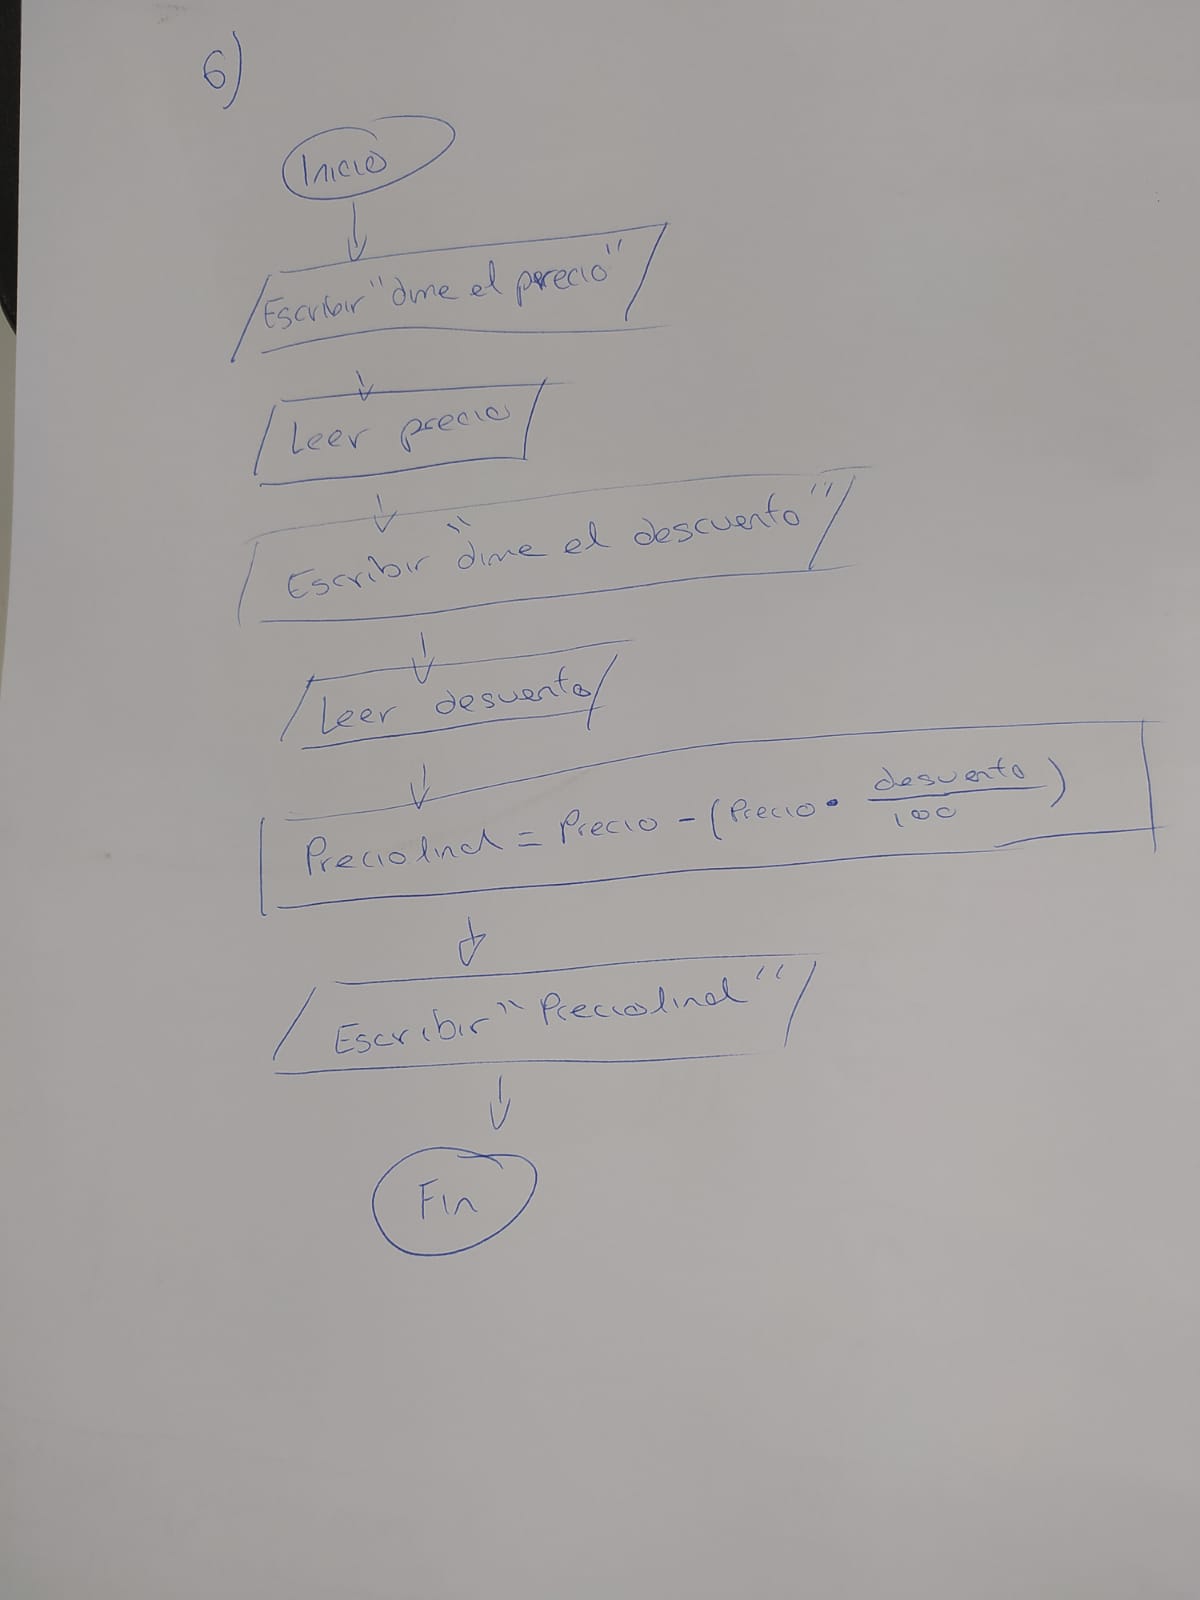 6)
Inicio
Escribir "dime el precio"
Leer precio
Escribir "dime el descuento"
Leer desuento
Preciofinal = Precio - (Precio • desuento/100)
Escribir "Preciofinal"
Fin